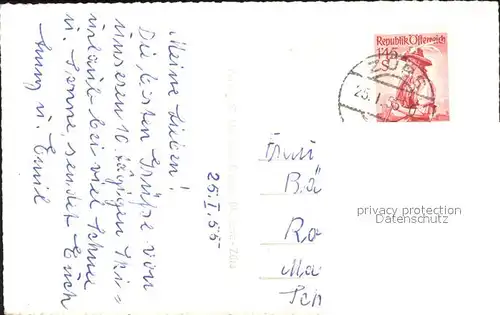 Meine Lieben!
Die besten Grüße von
unserem 10 tägigen Ski-
urlaub bei viel Schnee
u. Sonne sendet Euch
u. Emil
25.I.55
Republik Österreich
1'45
ZÜRS
25.I.55
Frau
Bä
Ro
Ma
Sch
privacy protection
Datenschutz